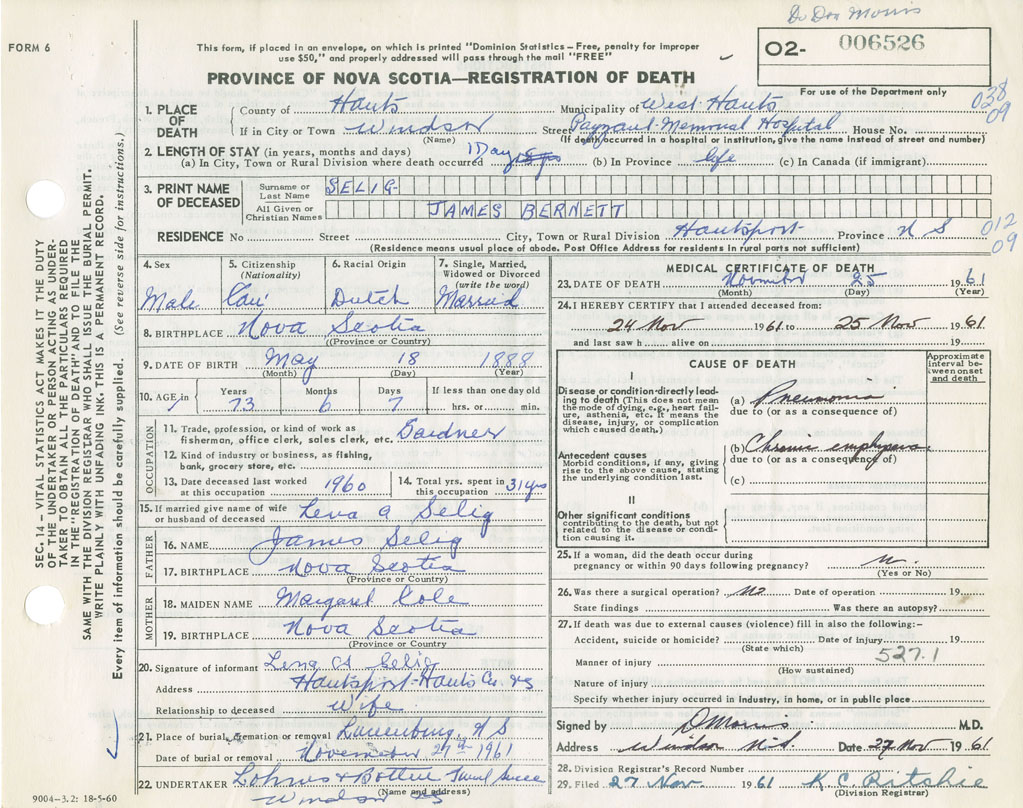 Dr Don Morris
FORM 6
This form, if placed in an envelope, on which is printed "Dominion Statistics – Free, penalty for improper
use $50," and properly addressed will pass through the mail "FREE"
O2- 006526
PROVINCE OF NOVA SCOTIA—REGISTRATION OF DEATH
For use of the Department only
1. PLACE OF DEATH
County of Hants Municipality of West Hants
038
09
If in City or Town Windsor Street Payzant Memorial Hospital House No.
(Name) (If death occurred in a hospital or institution, give the name instead of street and number)
2. LENGTH OF STAY (in years, months and days)
(a) In City, Town or Rural Division where death occurred 1 Day (b) In Province life (c) In Canada (if immigrant)
3. PRINT NAME OF DECEASED
Surname or Last Name SELIG
All Given or Christian Names JAMES BERNETT
RESIDENCE No Street City, Town or Rural Division Hantsport Province N S
012
09
(Residence means usual place of abode. Post Office Address for residents in rural parts not sufficient)
4. Sex Male
5. Citizenship (Nationality) Can
6. Racial Origin Dutch
7. Single, Married, Widowed or Divorced (write the word) Married
8. BIRTHPLACE Nova Scotia
(Province or Country)
9. DATE OF BIRTH May 18 1888
(Month) (Day) (Year)
10. AGE in Years 73 Months 6 Days 7 If less than one day old hrs. or min.
OCCUPATION
11. Trade, profession, or kind of work as
fisherman, office clerk, sales clerk, etc. Gardner
12. Kind of industry or business, as fishing,
bank, grocery store, etc.
13. Date deceased last worked at this occupation 1960
14. Total yrs. spent in this occupation 31 yrs
15. If married give name of wife or husband of deceased Lena A Selig
FATHER
16. NAME James Selig
17. BIRTHPLACE Nova Scotia
(Province or Country)
MOTHER
18. MAIDEN NAME Margaret Cole
19. BIRTHPLACE Nova Scotia
(Province or Country)
20. Signature of informant Lena A Selig
Address Hantsport Hants Co. NS
Relationship to deceased Wife
21. Place of burial, cremation or removal Lunenburg, N S
Date of burial or removal November 27th 1961
22. UNDERTAKER Lohnes &
(Name and address)
Windsor NS
MEDICAL CERTIFICATE OF DEATH
23. DATE OF DEATH November 25 1961
(Month) (Day) (Year)
24. I HEREBY CERTIFY that I attended deceased from:
24 Nov 1961 to 25 Nov 1961
and last saw h alive on 19
CAUSE OF DEATH
Approximate interval between onset and death
I
Disease or condition directly leading to death (This does not mean the mode of dying, e.g., heart failure, asthenia, etc. It means the disease, injury, or complication which caused death.)
(a) Pneumonia
due to (or as a consequence of)
Antecedent causes
Morbid conditions, if any, giving rise to the above cause, stating the underlying condition last.
(b) Chronic
due to (or as a consequence of)
(c)
II
Other significant conditions
contributing to the death, but not related to the disease or condition causing it.
25. If a woman, did the death occur during
pregnancy or within 90 days following pregnancy? no.
(Yes or No)
26. Was there a surgical operation? no Date of operation 19
State findings Was there an autopsy?
27. If death was due to external causes (violence) fill in also the following:–
Accident, suicide or homicide? Date of injury 19
(State which)
527.1
Manner of injury
(How sustained)
Nature of injury
Specify whether injury occurred in industry, in home, or in public place
Signed by D Morris M.D.
Address Windsor N.S. Date 27 Nov 1961
28. Division Registrar's Record Number
29. Filed 27 Nov. 1961 K. C. Ritchie
(Division Registrar)
SEC. 14 – VITAL STATISTICS ACT MAKES IT THE DUTY
OF THE UNDERTAKER OR PERSON ACTING AS UNDER-
TAKER TO OBTAIN ALL THE PARTICULARS REQUIRED
IN THE "REGISTRATION OF DEATH" AND TO FILE THE
SAME WITH THE DIVISION REGISTRAR WHO SHALL ISSUE THE BURIAL PERMIT.
WRITE PLAINLY WITH UNFADING INK. THIS IS A PERMANENT RECORD.
Every item of information should be carefully supplied. (See reverse side for instructions.)
9004–3.2: 18-5-60